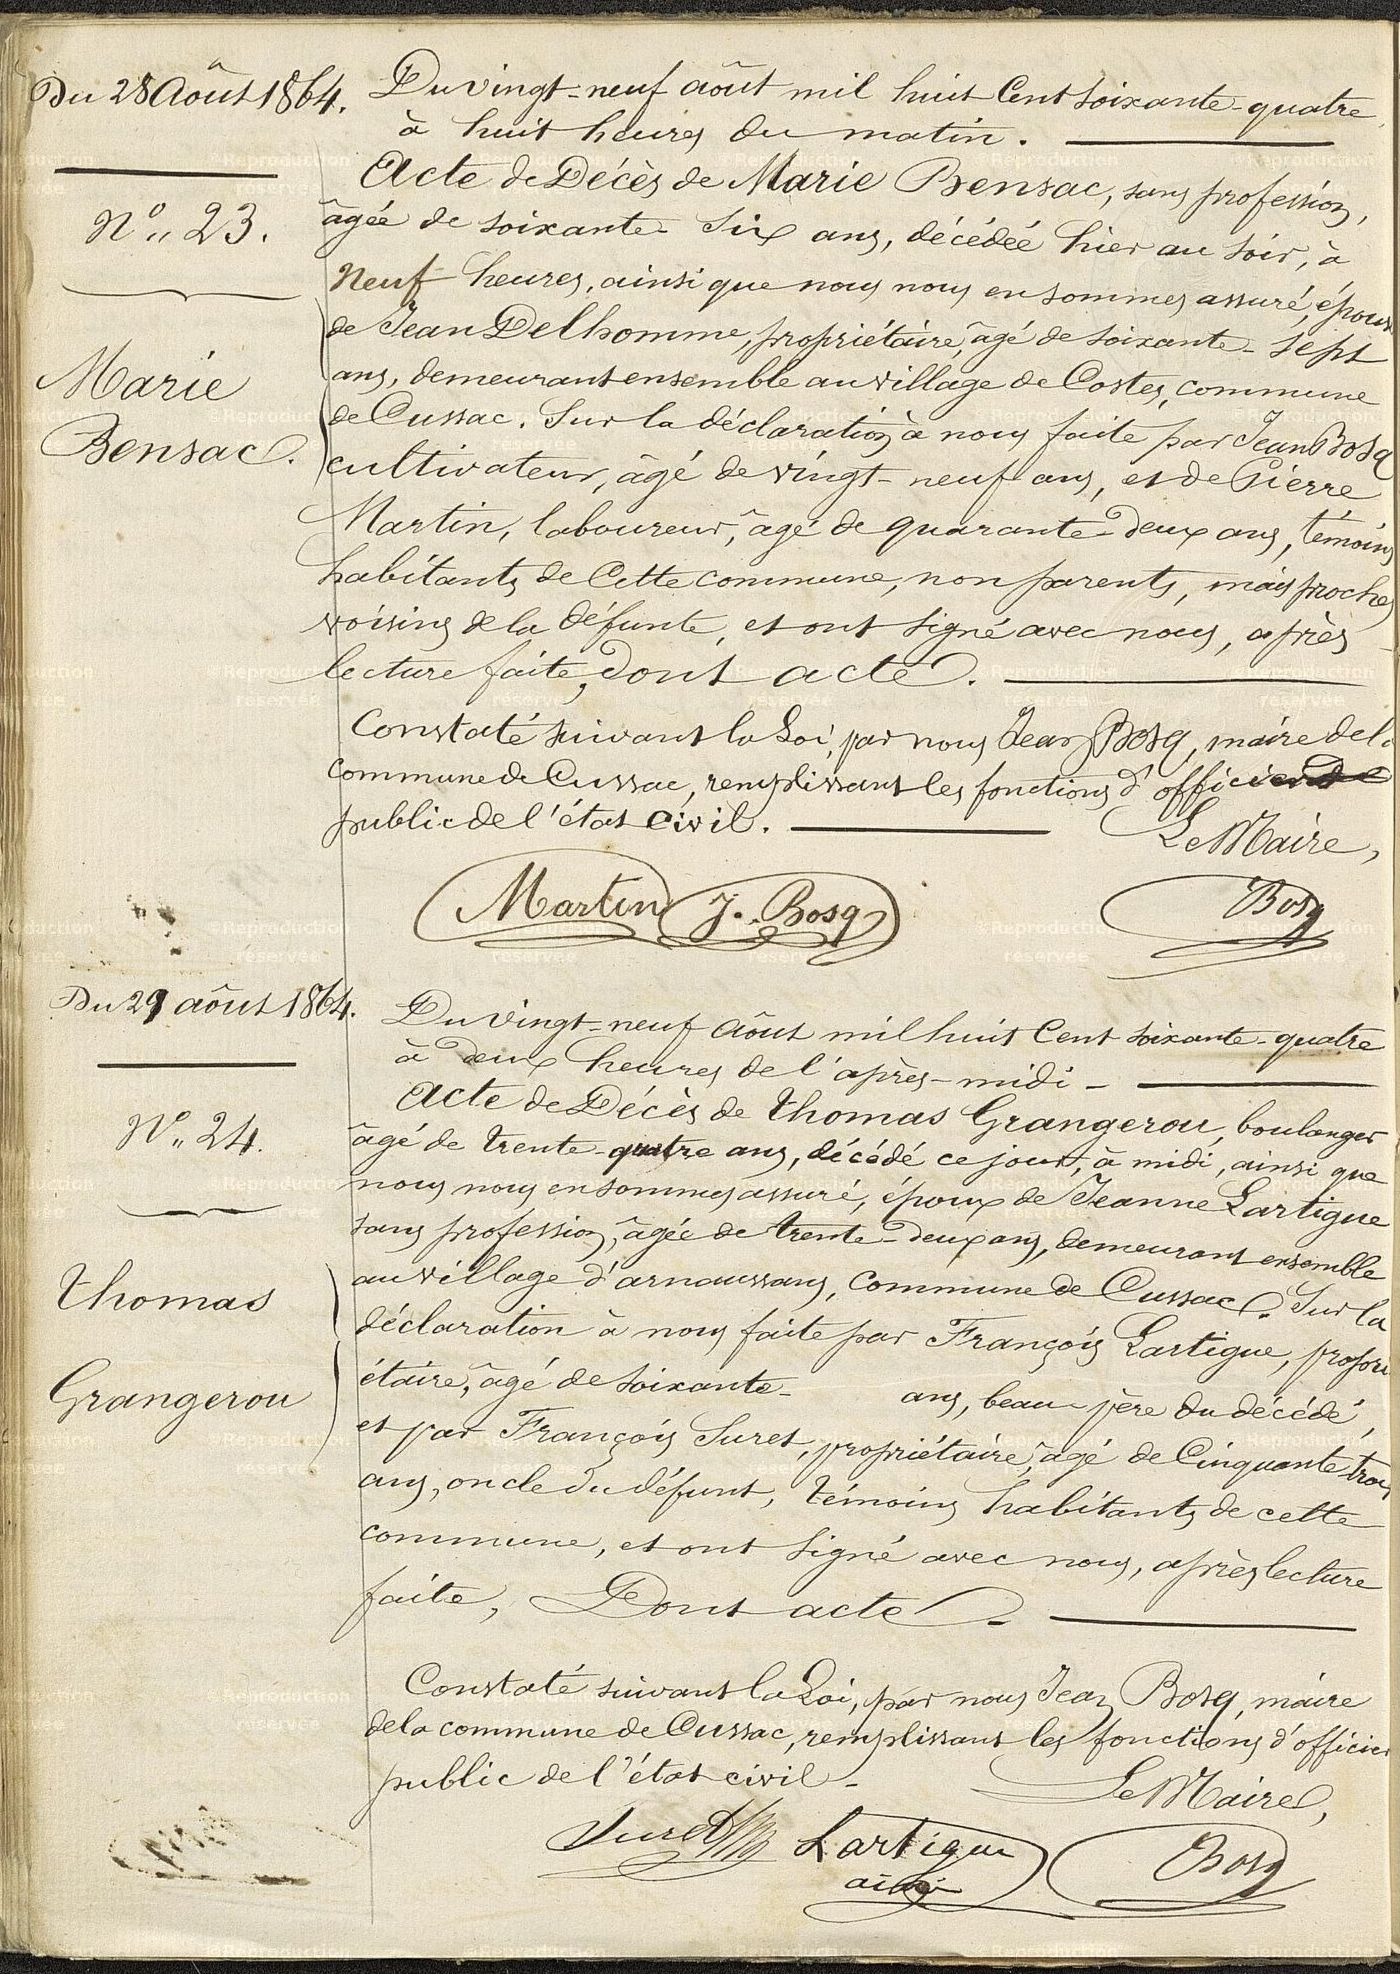 Du 28 Août 1864.
N° 23.
Marie
Bensac.
Du vingt-neuf août mil huit Cent soixante-quatre,
à huit heures du matin.
Acte de Décès de Marie Bensac, sans profession,
âgée de soixante-six ans, décédée hier au soir, à
neuf heures, ainsi que nous nous en sommes assuré, épouse
de Jean Delhomme, propriétaire, âgé de soixante-sept
ans, demeurant ensemble au village de Costes, commune
de Cussac. Sur la déclaration à nous faite par Jean Bosq
cultivateur, âgé de vingt-neuf ans, et de Pierre
Martin, laboureur, âgé de quarante-deux ans, témoins
habitants de Cette commune, non parents, mais proches
voisins de la défunte, et ont signé avec nous, après
lecture faite, dont acte.
Constaté suivant la Loi, par nous Jean Bosq, maire de la
commune de Cussac, remplissant les fonctions d'officier
public de l'état civil.
Le Maire,
Martin J. Bosq Bosq
Du 29 août 1864.
N° 24.
Thomas
Grangerou
Du vingt-neuf Août mil huit Cent soixante-quatre
à deux heures de l'après-midi
Acte de Décès de Thomas Grangerou, boulanger
âgé de trente-quatre ans, décédé ce jour, à midi, ainsi que
nous nous en sommes assuré, époux de Jeanne Lartigue
sans profession, âgée de trente-deux ans, demeurant ensemble
au village d'arnaussans, commune de Cussac. Sur la
déclaration à nous faite par François Lartigue, propri
étaire, âgé de soixante- ans, beau-père du décédé,
et par François Suret, propriétaire, âgé de Cinquante trois
ans, oncle du défunt, témoins habitants de cette
commune, et ont signé avec nous, après lecture
faite, Dont acte.
Constaté suivant la Loi, par nous Jean Bosq, maire
de la commune de Cussac, remplissant les fonctions d'officier
public de l'état civil.
Le Maire,
Suret Lartigue Bosq
ainé
©Reproduction
réservée